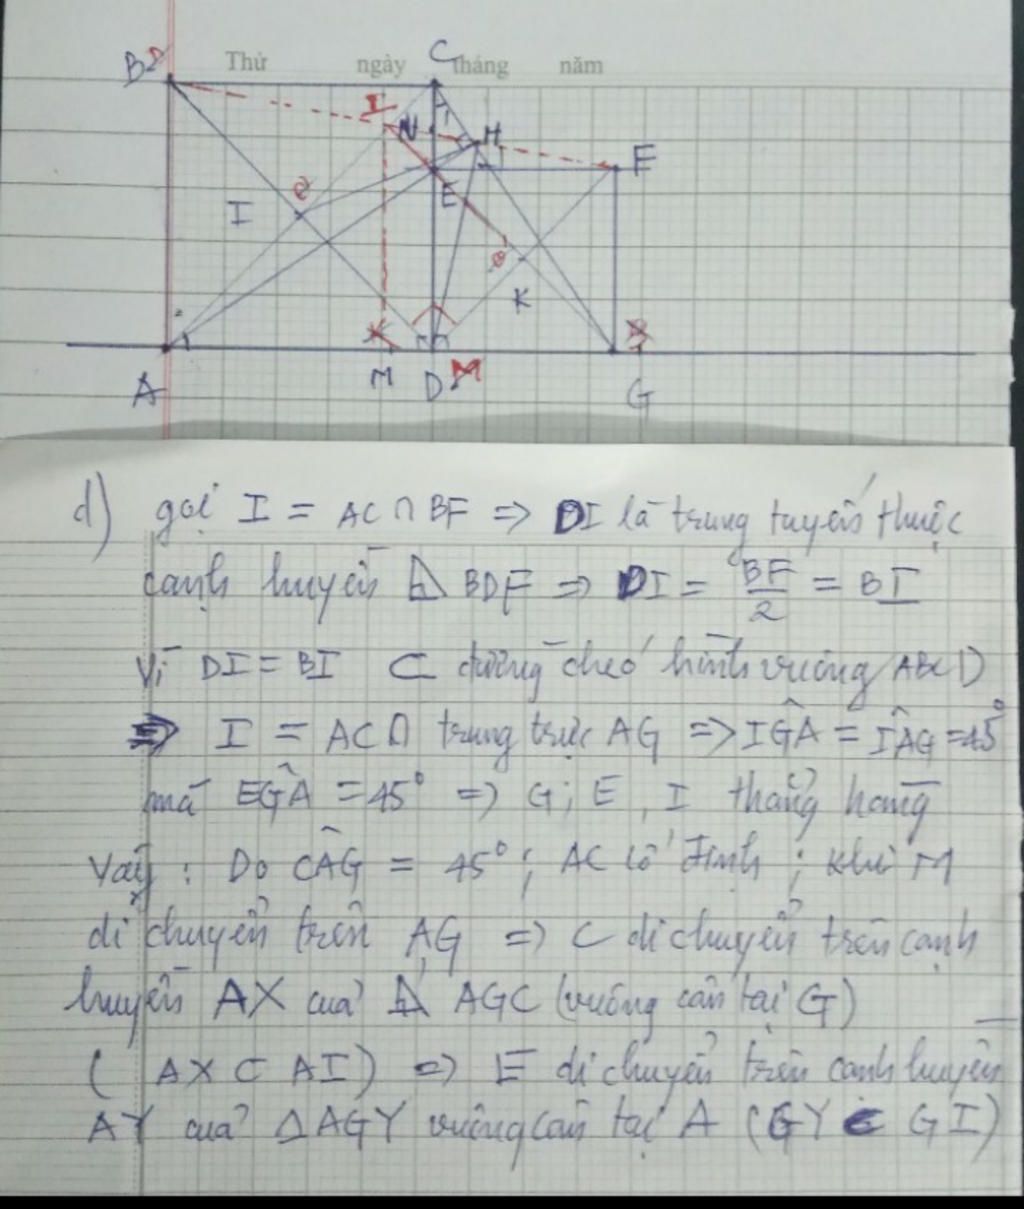 Thứ ngày tháng năm
B C
I N H F
E
I
K
A M D M G
d) gọi I = AC ∩ BF => DI là trung tuyến thuộc
cạnh huyền ⊿ BDF => DI = BF/2 = BI
Vì DI = BI ⊂ đường chéo hình vuông ABCD
=> I = AC ∩ trung trực AG => IĜA = IÂG = 45°
mà EĜA = 45° => G; E, I thẳng hàng
Vậy: Do CÂG = 45°; AC cố định; khi M
di chuyển trên AG => C di chuyển trên cạnh
huyền AX của ⊿ AGC (vuông cân tại G)
( AX ⊂ AI) => E di chuyển trên cạnh huyền
AY của ΔAGY vuông cân tại A (GY ∈ GI)